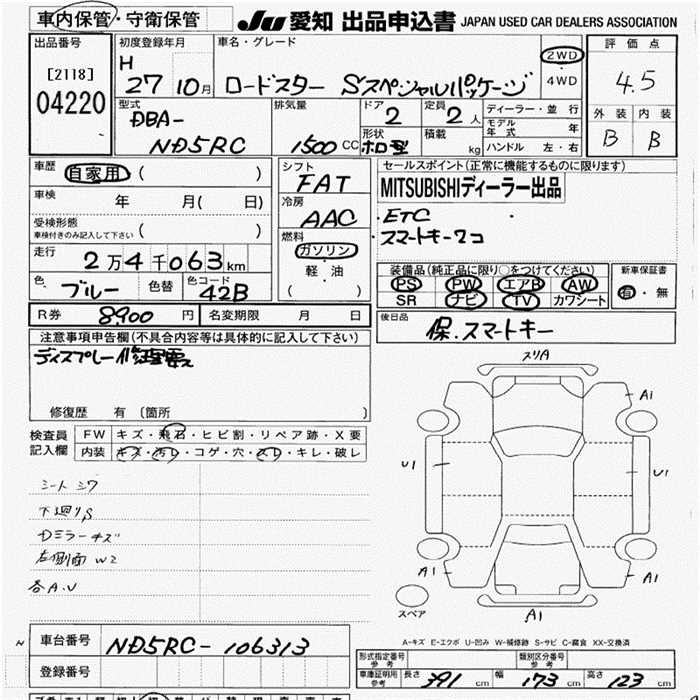 車内保管・守衛保管 JU 愛知 出品申込書 JAPAN USED CAR DEALERS ASSOCIATION
出品番号 初度登録年月 車名・グレード 評価点
[2118] H 27 10月 ロードスター Sスペシャルパッケージ 2WD 4WD 4.5
04220 外装 内装
型式 排気量 ドア 定員 ディーラー・並行 B B
DBA- 2 2人 モデル年式 年
ND5RC 1500CC 形状 ホロ型 積載 kg ハンドル 左・右
車歴 自家用 ( ) シフト セールスポイント(正常に機能するものに限ります)
FAT MITSUBISHIディーラー出品
車検 年 月( 日) 冷房
AAC ・ETC
受検形態 車検付きのみ記入して下さい ( ) ・スマートキー2コ
燃料
走行 2万4千063km ガソリン
軽・油 装備品(純正品に限り○をつけてください) 新車保証書
色 ブルー 色替 色コード 42B ( ) PS PW エアB AW 有・無
SR ナビ TV カワシート
R券 8,900円 名変期限 月 日 後日品
保.スマートキー
注意事項申告欄(不具合内容等は具体的に記入して下さい)
ディスプレー修理要
スリA
A1
修復歴 有 (箇所 )
検査員 FW キズ・飛石・ヒビ割・リペア跡・X要
記入欄 内装 キズ・汚レ・コゲ・穴・スレ・キレ・破レ
シートシワ U1 U1
下廻りS
Dミラーキズ
右側面 W2
各A.U A1 A1
スペア A1
A-キズ E-エクボ U-凹み W-補修跡 S-サビ C-腐食 XX-交換済
車台番号 ND5RC-106313
形式指定番号 参考 類別区分番号 参考
登録番号 車庫証明用 参考 長さ 391cm 幅 173cm 高さ 123cm